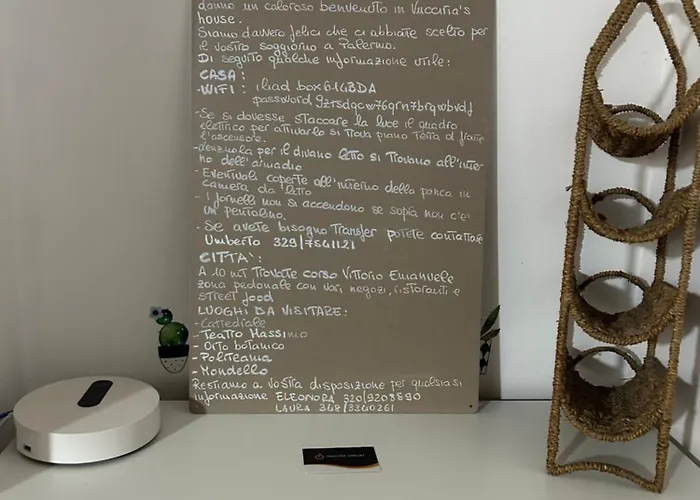 danno un caloroso benvenuto in Vucciria's
house.
Siamo davvero felici che ci abbiate scelto per
il vostro soggiorno a Palermo.
Di seguito qualche informazione utile:
CASA:
-WIFI: iliad box614BDA
password
-Se si dovesse staccare la luce il quadro
elettrico per attivarlo si trova piano terra di fronte
l'ascensore.
-Lenzuola per il divano letto si trovano all'inter-
no dell'armadio
- Eventuali coperte all'interno della panca in
camera da letto
- I fornelli non si accendono se sopra non c'è
un pentolino.
- Se avete bisogno Transfer potete contattare
Umberto 329/7541121
CITTA':
A 10 mt Trovate corso Vittorio Emanuele
zona pedonale con vari negozi, ristoranti e
street food
LUOGHI DA VISITARE:
-Cattedrale
- Teatro Massimo
- Orto botanico
- Politeama
- Mondello
Restiamo a vostra disposizione per qualsiasi
informazione ELEONORA 320/9208890
LAURA 348/3340261